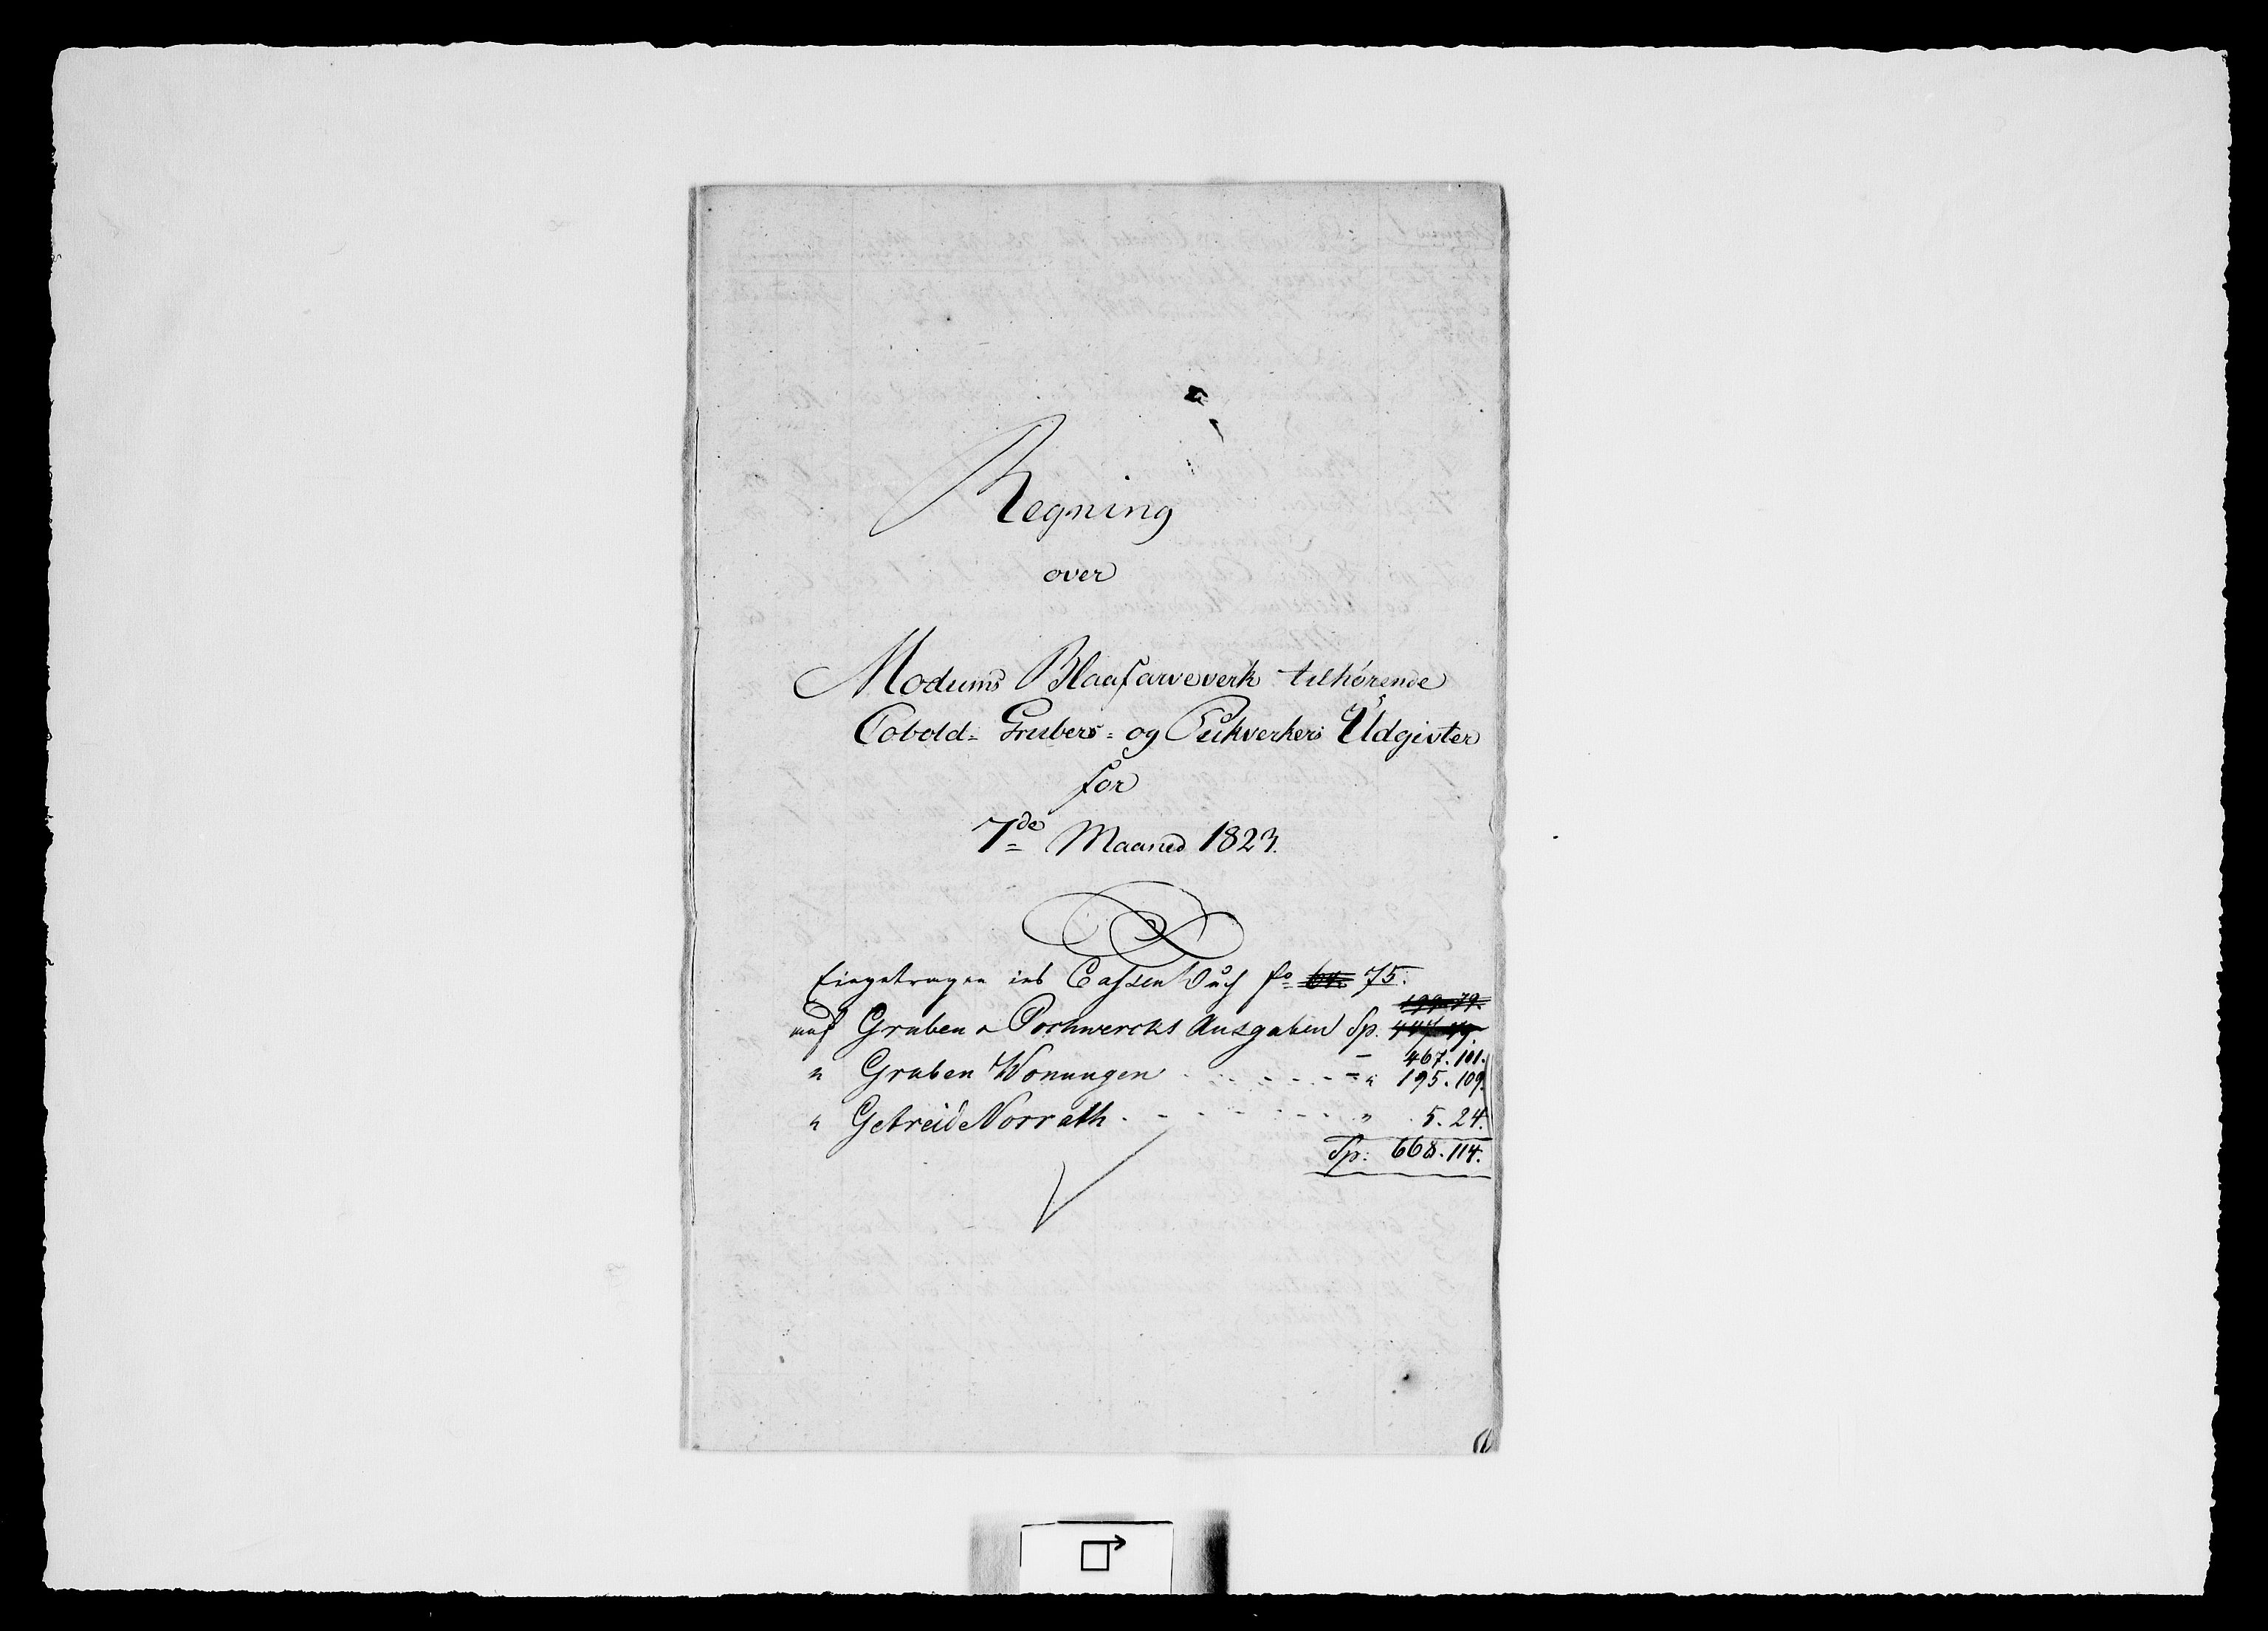 Regning
over
Modums Blaafarveverk tilhörende
Cobold- Grubers- og Pukverkers Udgivter
for
7de Maaned 1823.
Eingetragen ins Cassen Buch fo 64. 75.
199.79.
auf Gruben & Pochwercks Ausgaben Sp.
- 467.101.
" Gruben Wonungen - - - - - " 195.109.
" Getreide Vorrath. - - - - - " 5.24.
Sp. 668.114.